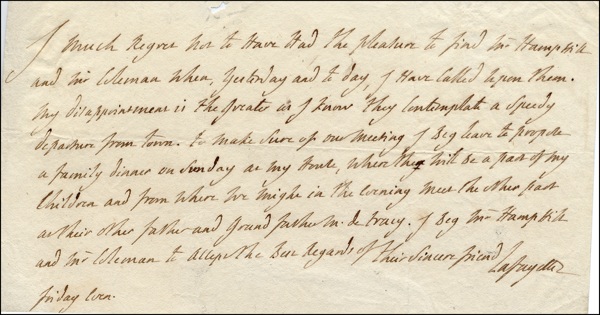 I Much Regret Not to Have Had the pleasure to find Mr Hamphill
and Mr Coleman When, Yesterday and to day I Have Called Upon them.
My disappointment is the Greater as I Know they Contemplate a Speedy
departure from town. to make Sure of our Meeting I Beg leave to propose
a family dinner on Sunday at my House, Where they Will Be a part of my
Children and from where We Might in the Evening Meet the other part
at their other father and Grand father Mr. de tracy. I Beg Mr Hamphill
and Mr Coleman to Accept the Best Regards of their Sincere friend
Lafayette
friday Even.